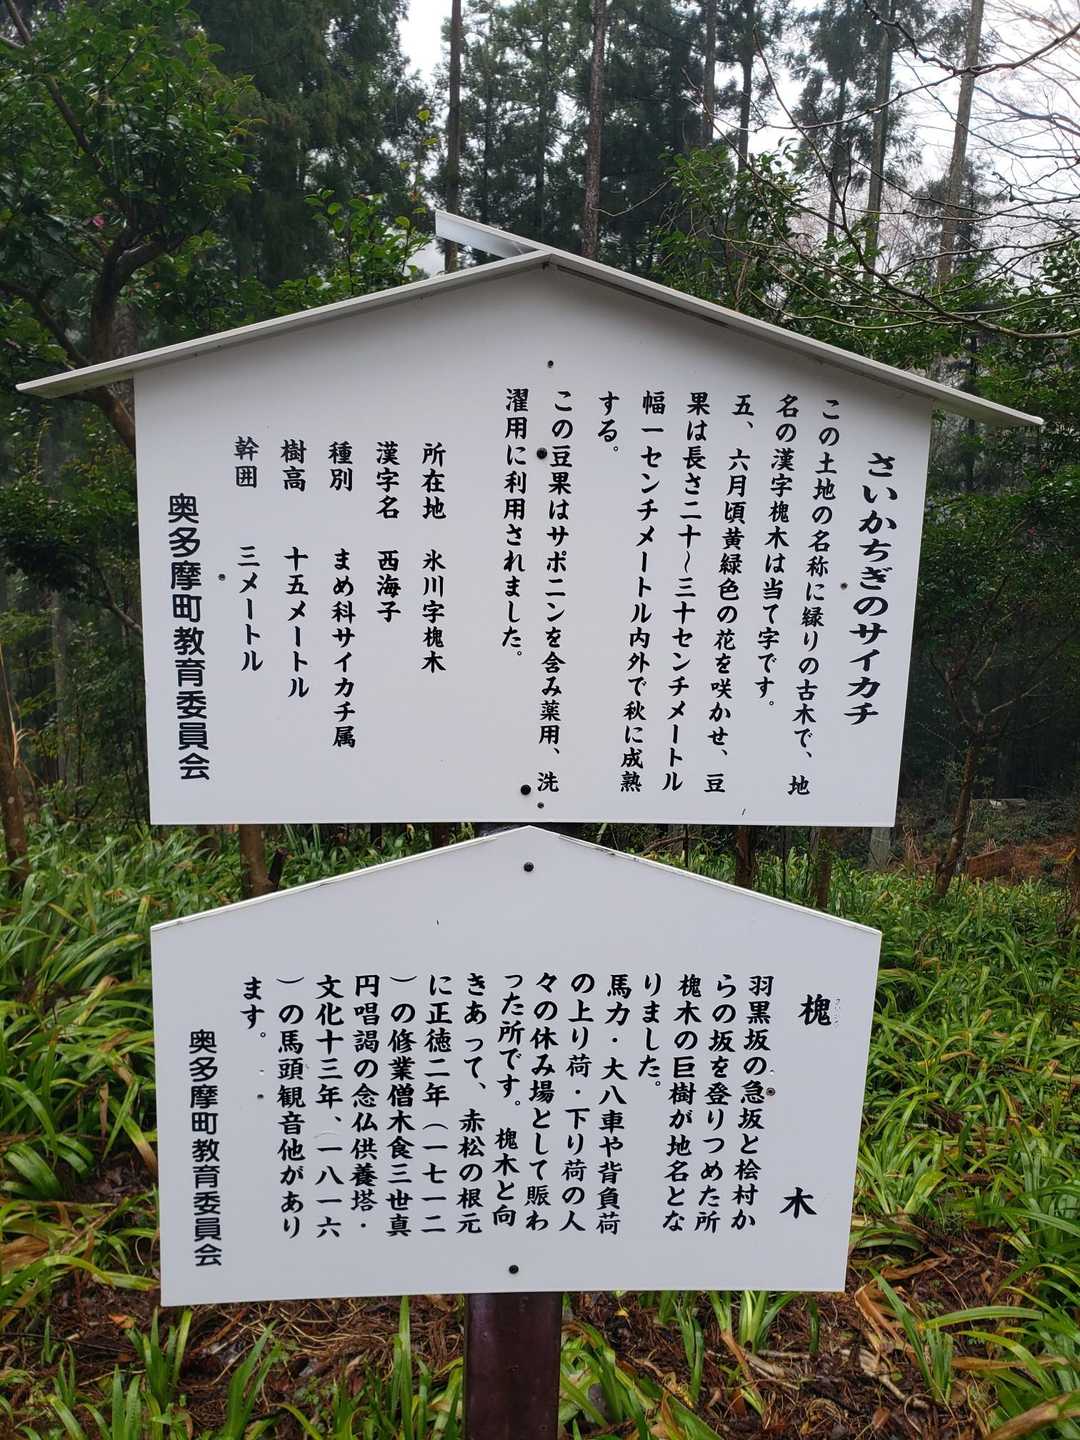 さいかちぎのサイカチ
この土地の名称に縁りの古木で、地
名の漢字槐木は当て字です。
五、六月頃黄緑色の花を咲かせ、豆
果は長さ二十〜三十センチメートル
幅一センチメートル内外で秋に成熟
する。
この豆果はサポニンを含み薬用、洗
濯用に利用されました。
所在地 氷川字槐木
漢字名 西海子
種別 まめ科サイカチ属
樹高 十五メートル
幹囲 三メートル
奥多摩町教育委員会
槐木
羽黒坂の急坂と桧村か
らの坂を登りつめた所
槐木の巨樹が地名とな
りました。
馬力・大八車や背負荷
の上り荷・下り荷の人
々の休み場として賑わ
った所です。槐木と向
きあって、赤松の根元
に正徳二年（一七一二
）の修業僧木食三世真
円唱謁の念仏供養塔・
文化十三年、（一八一六
）の馬頭観音他があり
ます。
奥多摩町教育委員会